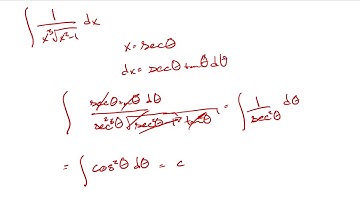 ∫ 1/(x³√(x²-1)) dx
x = secθ
dx = secθ tanθ dθ
∫ secθ tanθ dθ / (sec³θ √(sec²θ - 1) tanθ) = ∫ 1/sec²θ dθ
= ∫ cos²θ dθ = c